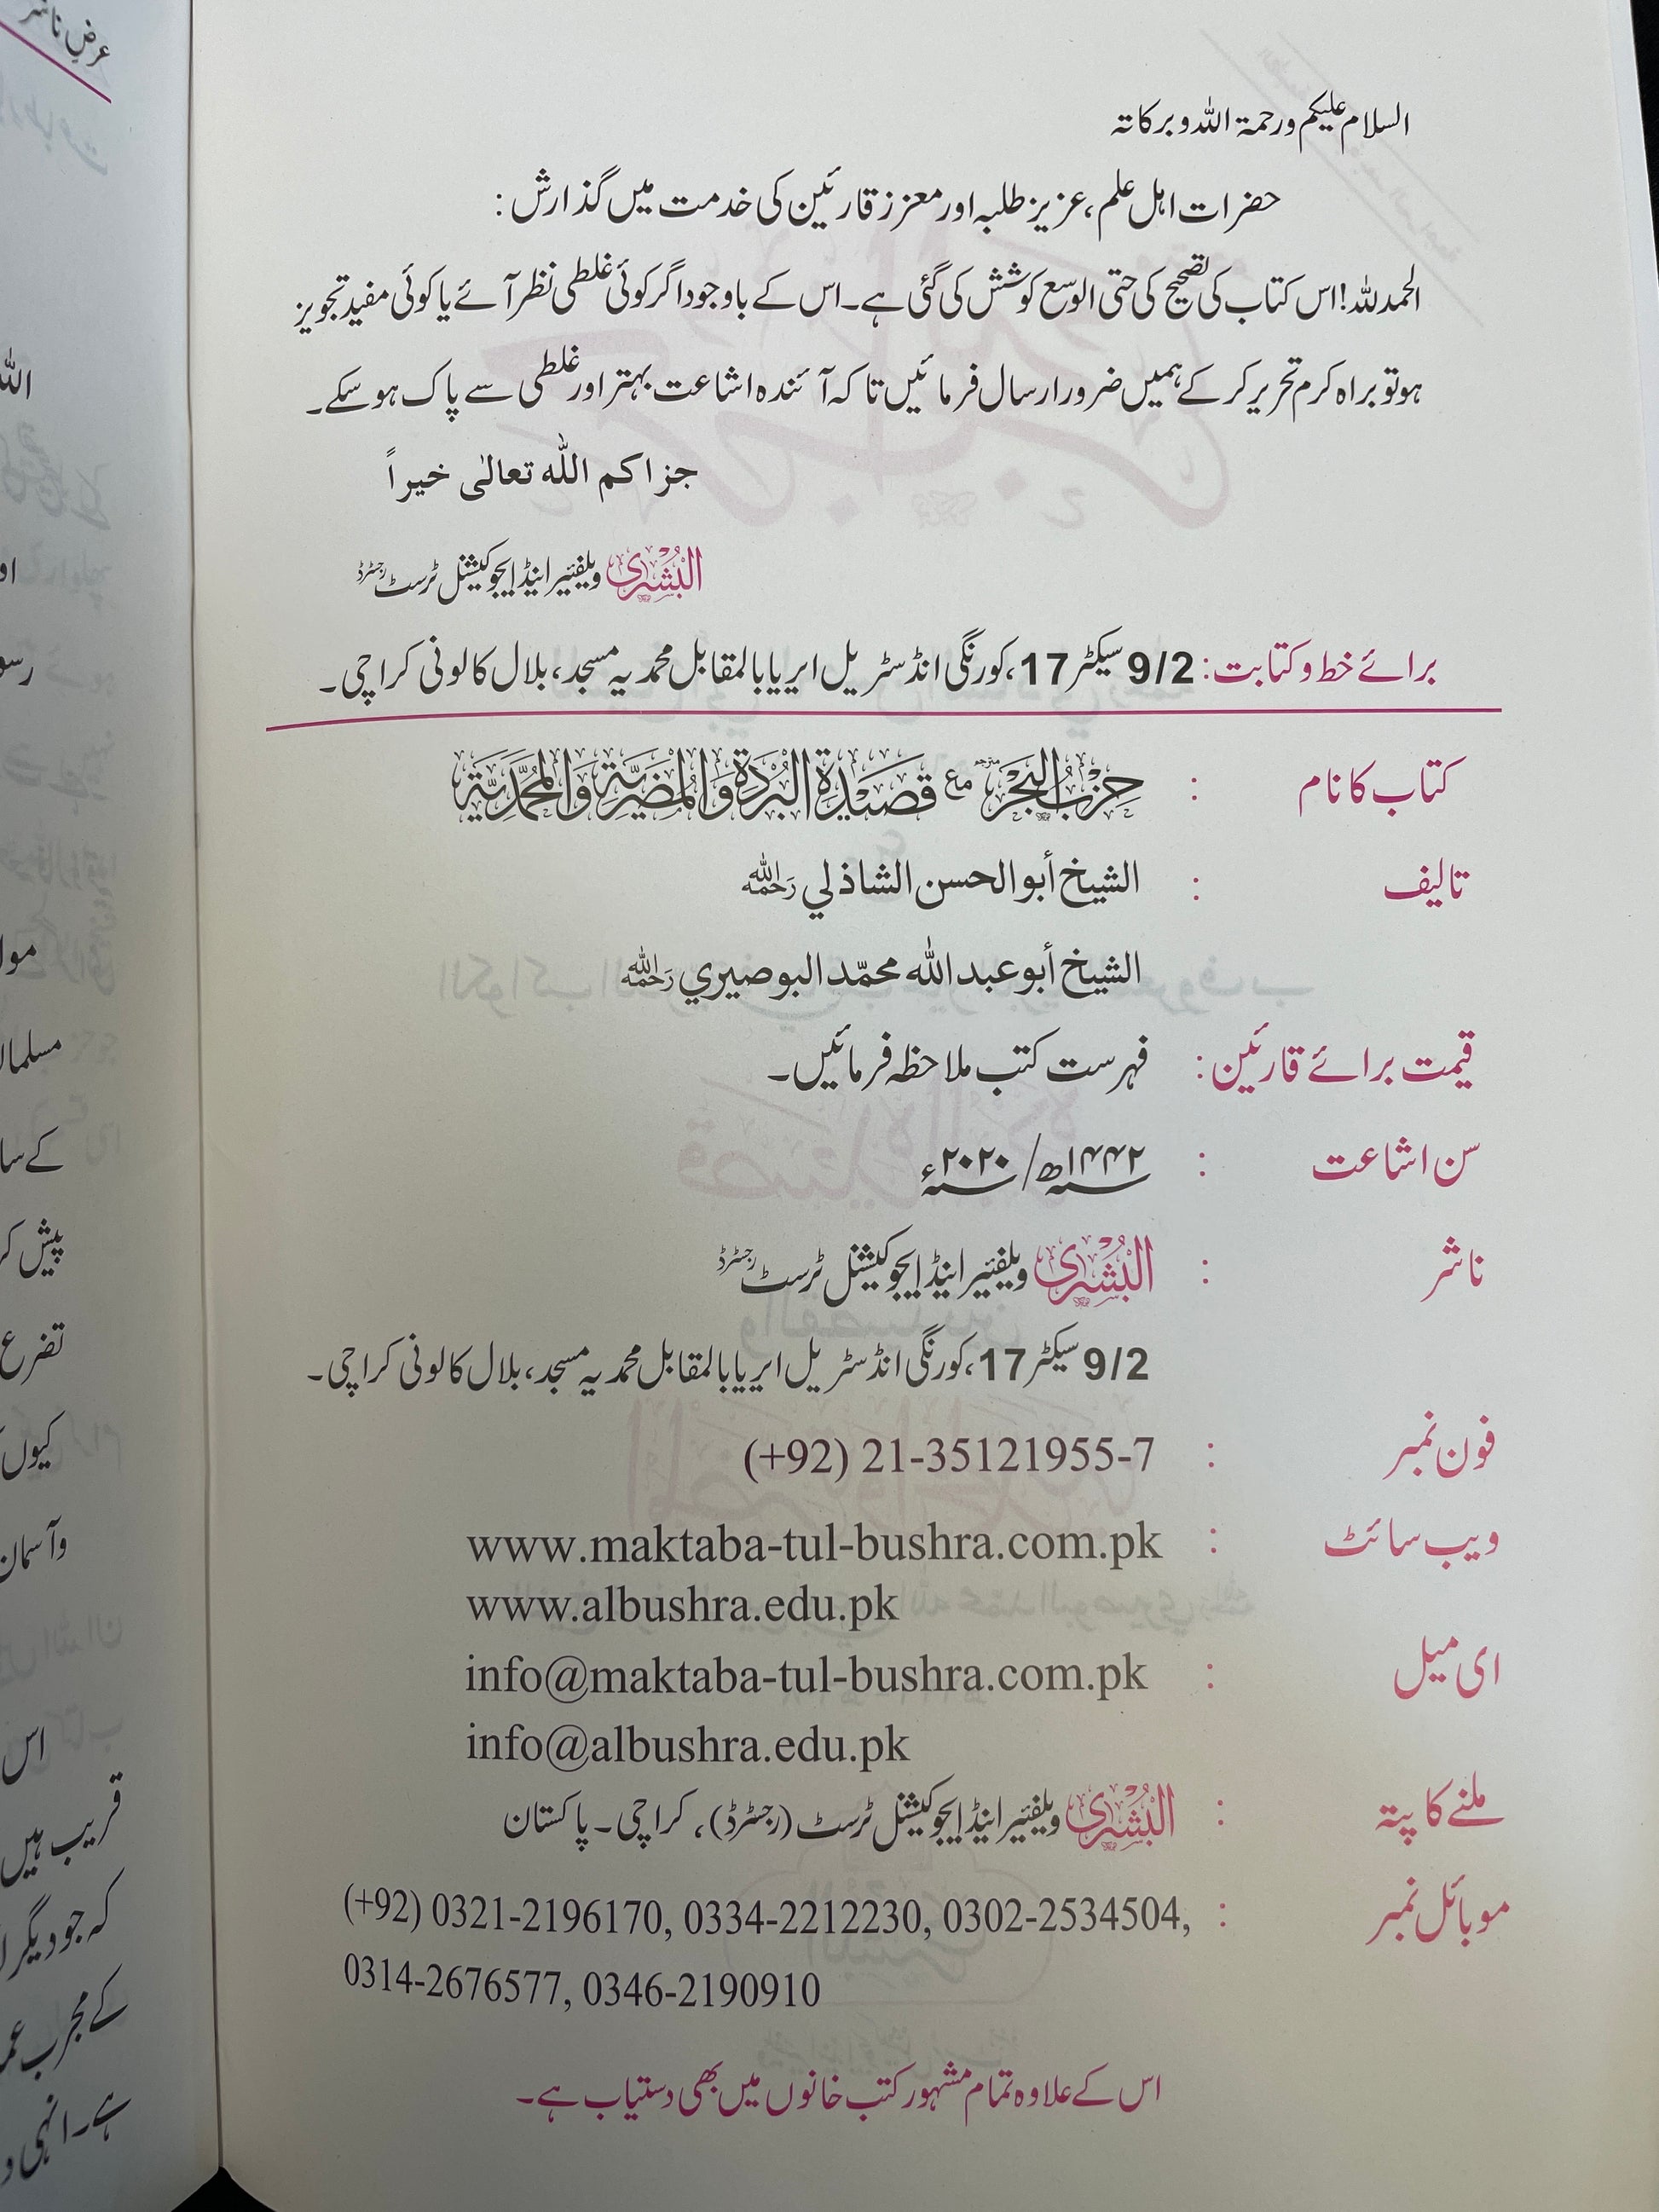 السلام علیکم ورحمۃ اللہ وبرکاتہ
حضرات اہل علم، عزیز طلبہ اور معزز قارئین کی خدمت میں گذارش:
الحمد للہ! اس کتاب کی تصحیح کی حتی الوسع کوشش کی گئی ہے۔ اس کے باوجود اگر کوئی غلطی نظر آئے یا کوئی مفید تجویز
ہو تو براہ کرم تحریر کر کے ہمیں ضرور ارسال فرمائیں تاکہ آئندہ اشاعت بہتر اور غلطی سے پاک ہو سکے۔
جزاکم اللّٰہ تعالٰی خیراً
البُشریٰ ویلفیئر اینڈ ایجوکیشنل ٹرسٹ رجسٹرڈ
برائے خط و کتابت: 9/2 سیکٹر 17، کورنگی انڈسٹریل ایریا بالمقابل محمدیہ مسجد، بلال کالونی کراچی۔
کتاب کا نام : حِزْبُ الْبَحْر مترجم مع قَصِیْدَۃُ الْبُرْدَۃ وَالْمُضَرِیَّۃ وَالْمُحَمَّدِیَّۃ
تالیف : الشیخ أبو الحسن الشاذلي رَحِمَهُ اللّٰه
الشیخ أبو عبد اللّٰه محمّد البوصیري رَحِمَهُ اللّٰه
قیمت برائے قارئین : فہرست کتب ملاحظہ فرمائیں۔
سن اشاعت : ۱۴۴۲ھ / ۲۰۲۰ء
ناشر : البُشریٰ ویلفیئر اینڈ ایجوکیشنل ٹرسٹ رجسٹرڈ
9/2 سیکٹر 17، کورنگی انڈسٹریل ایریا بالمقابل محمدیہ مسجد، بلال کالونی کراچی۔
فون نمبر : (+92) 21-35121955-7
ویب سائٹ : www.maktaba-tul-bushra.com.pk
www.albushra.edu.pk
ای میل : info@maktaba-tul-bushra.com.pk
info@albushra.edu.pk
ملنے کا پتہ : البُشریٰ ویلفیئر اینڈ ایجوکیشنل ٹرسٹ (رجسٹرڈ)، کراچی۔ پاکستان
موبائل نمبر : (+92) 0321-2196170, 0334-2212230, 0302-2534504,
0314-2676577, 0346-2190910
اس کے علاوہ تمام مشہور کتب خانوں میں بھی دستیاب ہے۔
عرض ناشر
اللہ
مسلمان
پیش
تضرع
کیوں
وآسمان
اس
قریب ہیں
کہ جو دیگر
کے مجرب
ہے۔ انہی